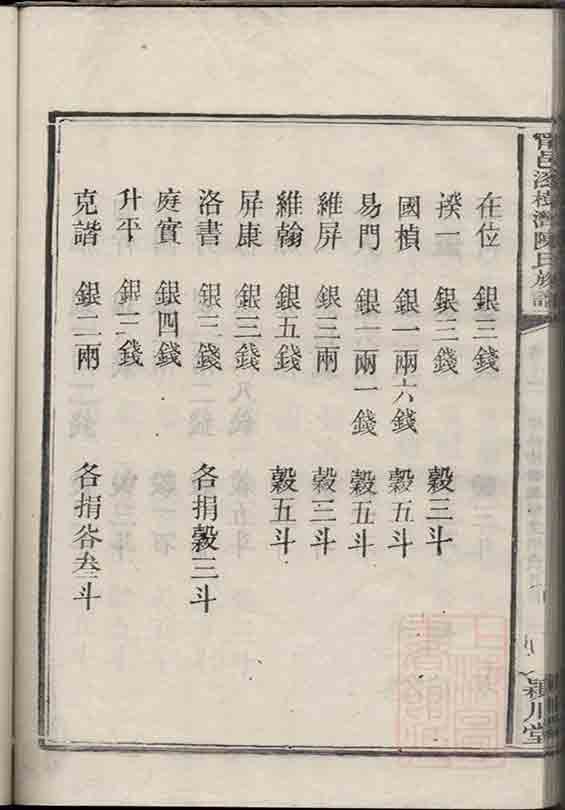 在位 銀三錢
揆一 銀三錢 穀三斗
國楨 銀一兩六錢 穀五斗
易門 銀一兩一錢 穀五斗
維屏 銀三兩 穀三斗
維翰 銀五錢 穀五斗
屏康 銀三錢
洛書 銀三錢 各捐穀三斗
庭實 銀四錢
升平 銀三錢
克諧 銀二兩 各捐谷叁斗
陳氏族譜
潁川堂